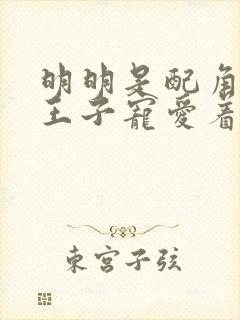 明明是配角
王子寵愛着
東宮子弦